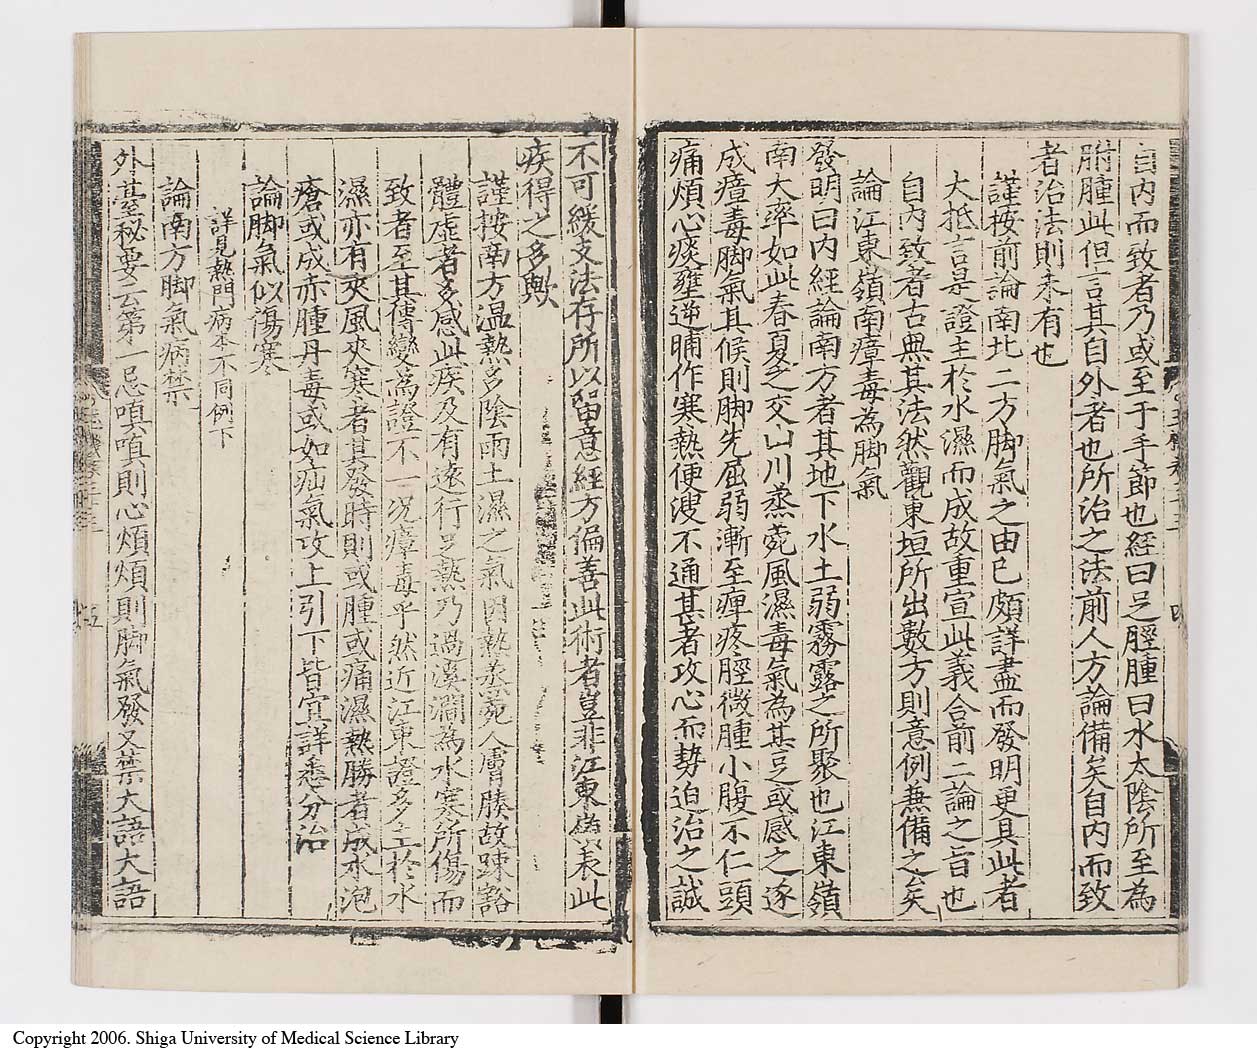 自内而致者乃或至于手節也經曰足脛腫曰水太陰所至為
胕腫此但言其自外者也所治之法前人方論備矣自内而致
者治法則未有也
謹按前論南北二方脚氣之由已頗詳盡而發明更具此者
大抵言是證主於水濕而成故重宣此義合前二論之旨也
自内致者古無其法然觀東垣所出數方則意例兼備之矣
論江東嶺南瘴毒為脚氣
發明曰内經論南方者其地下水土弱霧露之所聚也江東嶺
南大率如此春夏之交山川蒸菀風濕毒氣為甚足或感之遂
成瘴毒脚氣其候則脚先屈弱漸至痺疼脛微腫小腹不仁頭
痛煩心痰壅逆晡作寒熱便溲不通甚者攻心而勢迫治之誠
不可緩支法存所以留意經方偏善此術者豈非江東嶺表此
疾得之多歟
謹按南方温熱多陰雨土濕之氣因熱蒸菀人膚腠故踈豁
體虛者多感此疾及有遠行足熱乃過溪澗為水寒所傷而
致者至其傳變為證不一况瘴毒乎然近江東證多主於水
濕亦有夾風夾寒者其發時則或腫或痛濕熱勝者成水泡
瘡或成赤腫丹毒或如疝氣攻上引下皆宜詳悉分治
論脚氣似傷寒
詳見熱門病本不同例下
論南方脚氣病禁
外臺秘要云第一忌嗔嗔則心煩煩則脚氣發又禁大語大語